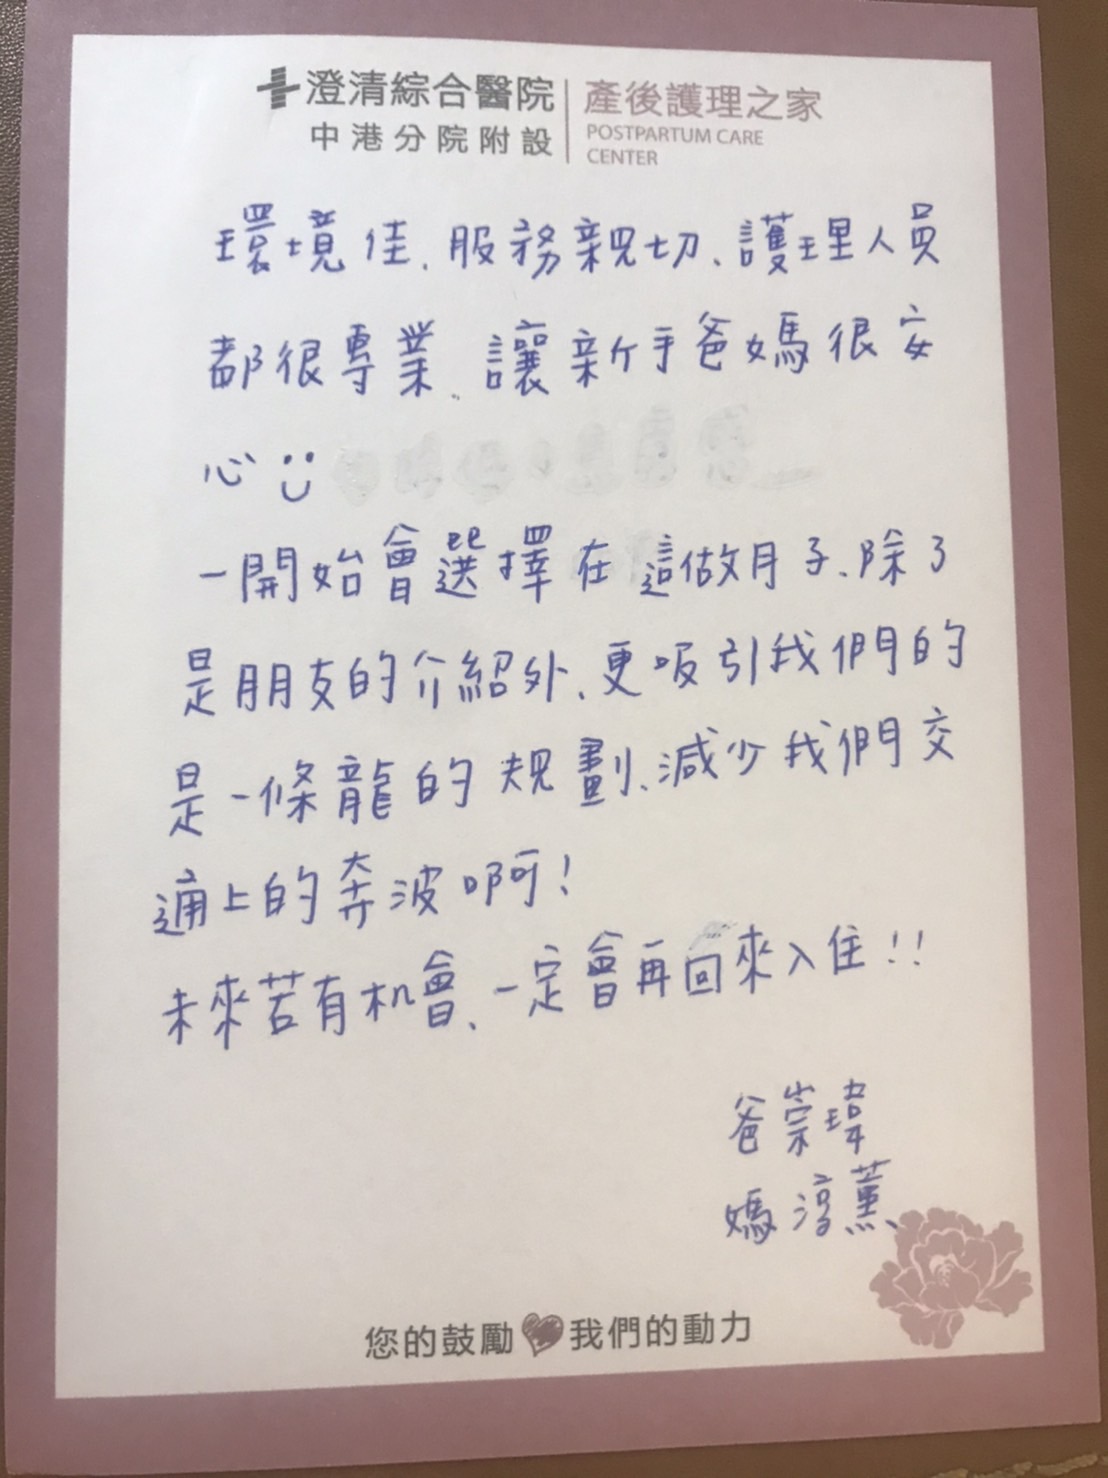 澄清綜合醫院
中港分院附設
產後護理之家
POSTPARTUM CARE
CENTER
環境佳、服務親切、護理人員
都很專業、讓新手爸媽很安
心
一開始會選擇在這做月子、除了
是朋友的介紹外、更吸引我們的
是一條龍的規劃、減少我們交
通上的奔波啊!
未來若有机會、一定會再回來入住!!
爸崇瑋
媽淳薰
您的鼓勵 我們的動力